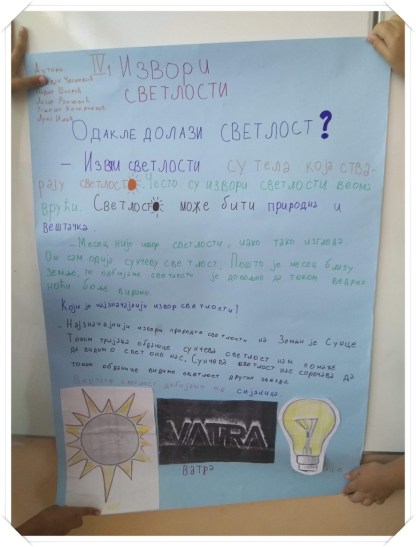 Аутори
IV1 Извори
светлости
Одакле долази светлост?
– Извори светлости су тела која ства-
рају светлост. Често су извори светлости веома
врући. Светлост може бити природна и
вештачка.
– Месец није извор светлости, иако тако изгледа.
Он само одбије сунчеву светлост. Пошто је месец близу
земље, та одбијена светлост је довољна да током ведрих
ноћи боље видимо.
Који је најзначајнији извор светлости?
– Најзначајнији извор природне светлости на Земљи је Сунце
Током трајања обданице сунчева светлост нам помаже
да видимо свет око нас. Сунчева светлост нас спречава да
током обданице видимо светлост других звезда.
светлост добијамо од сијалица
VATRA
Ватра